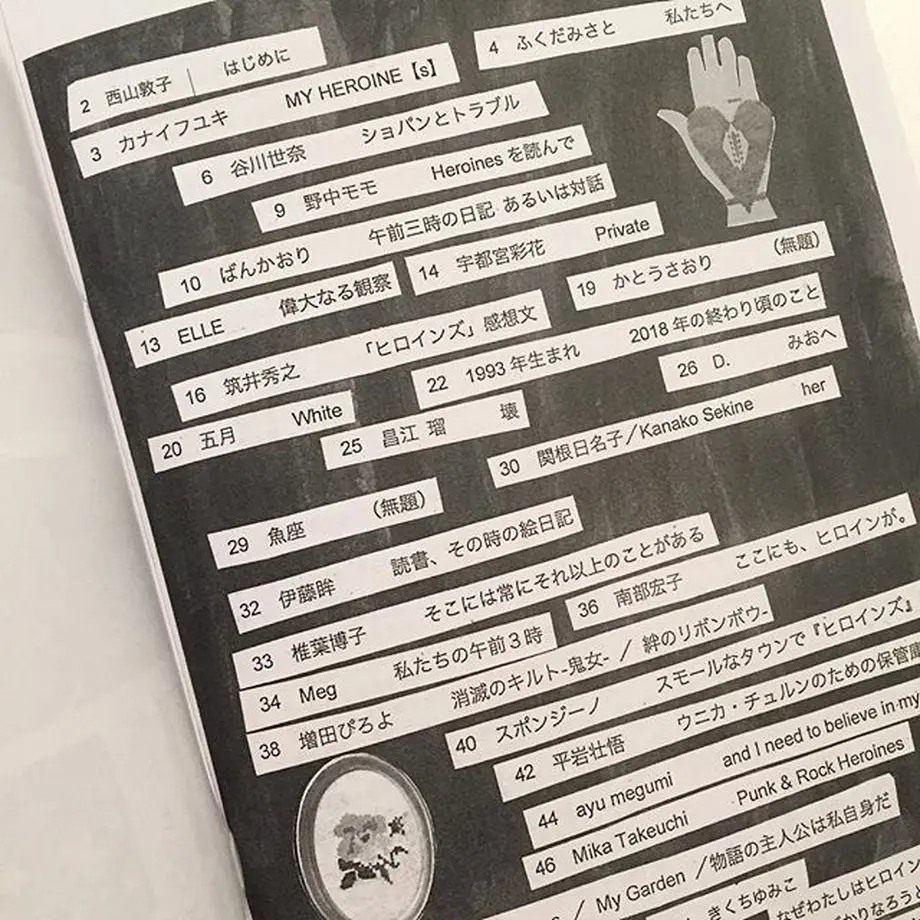 2 西山敦子 | はじめに
4 ふくだみさと 私たちへ
3 カナイフユキ MY HEROINE【s】
6 谷川世奈 ショパンとトラブル
9 野中モモ Heroines を読んで
10 ばんかおり 午前三時の日記 あるいは対話
14 宇都宮彩花 Private
13 ELLE 偉大なる観察
19 かとうさおり (無題)
16 筑井秀之 「ヒロインズ」感想文
22 1993 年生まれ 2018 年の終わり頃のこと
26 D. みおへ
20 五月 White
25 昌江 瑠 壊
30 関根日名子/Kanako Sekine her
29 魚座 (無題)
32 伊藤眸 読書、その時の絵日記
33 椎葉博子 そこには常にそれ以上のことがある
36 南部宏子 ここにも、ヒロインが。
34 Meg 私たちの午前3時
38 増田ぴろよ 消滅のキルト-鬼女- / 絆のリボンボウ-
40 スポンジーノ スモールなタウンで『ヒロインズ』
42 平岩壮悟 ウニカ・チュルンのための保管庫
44 ayu megumi and I need to believe in my
46 Mika Takeuchi Punk & Rock Heroines
/ My Garden /物語の主人公は私自身だ
きくちゆみこ
なぜわたしはヒロイン